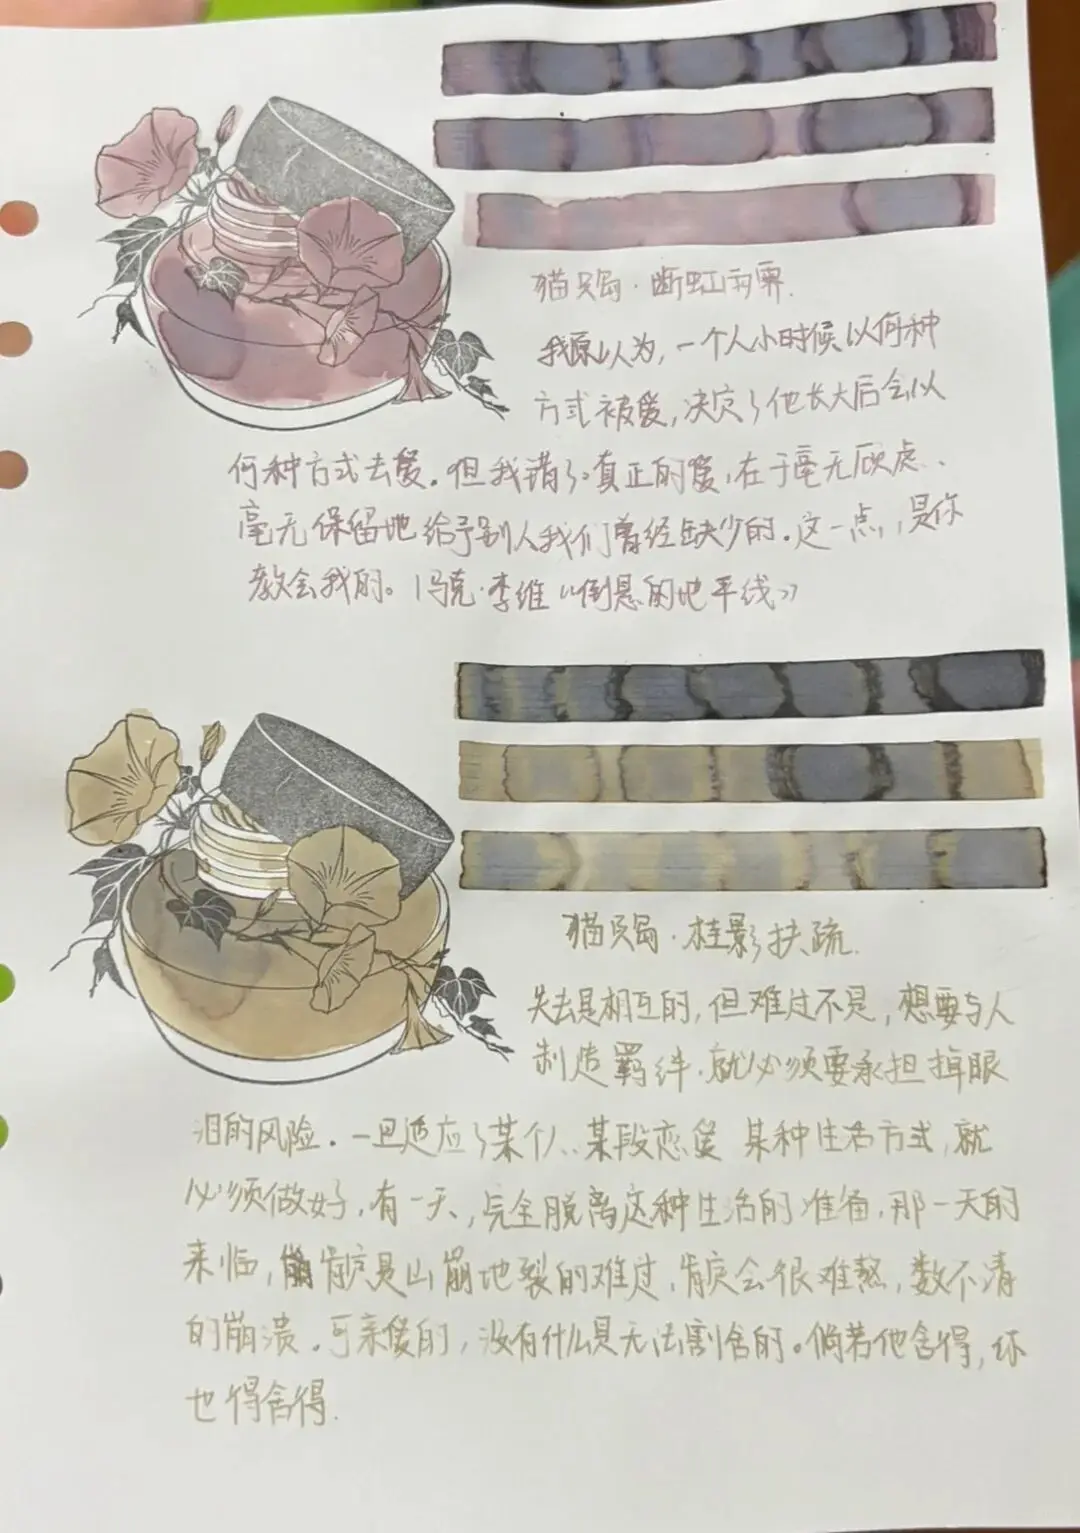 猫只岛·断虹雨霁.
我原以为,一个人小时候以何种
方式被爱,决定了他长大后会以
何种方式去爱.但我错了。真正的爱,在于毫无顾虑、
毫无保留地给予别人我们曾经缺少的.这一点,是你
教会我的。|马克·李维《倒悬的地平线》
猫只岛·桂影扶疏.
失去是相互的,但难过不是,想要与人
制造羁绊.就必须要承担掉眼
泪的风险.一旦适应了某个人..某段恋爱 某种生活方式,就
必须做好,有一天,完全脱离这种生活的准备,那一天的
来临,肯定是山崩地裂的难过,肯定会很难熬,数不清
的崩溃.可亲爱的,没有什么是无法割舍的。倘若他舍得,你
也得舍得.